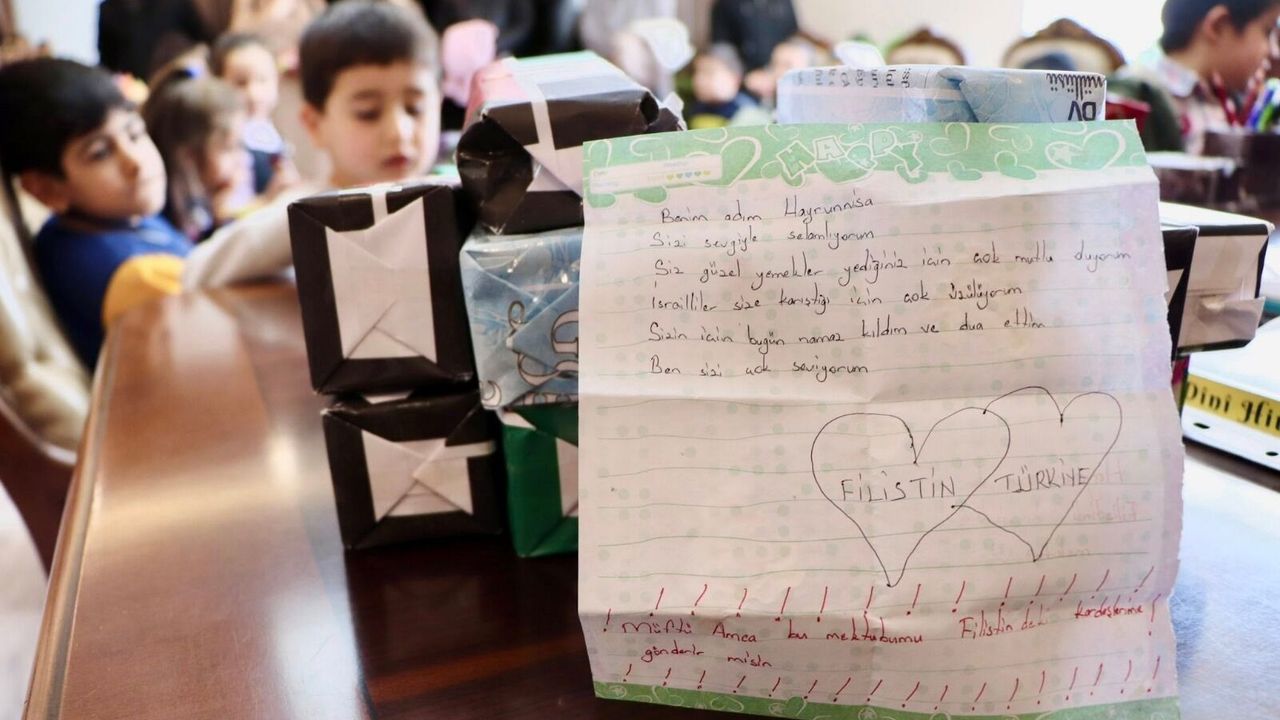 HAPPY
Benim adım Hayrunnisa
Sizi sevgiyle selamlıyorum
Siz güzel yemekler yediğiniz için çok mutlu duyorum
İsrailliler size karıştığı için çok üzülüyorum
Sizin için bugün namaz kıldım ve dua ettim
Ben sizi çok seviyorum
FİLİSTİN
TÜRKİYE
! Müftü Amca bu mektubumu Filistin'deki kardeşlerime !
gönderir misin
Dini Hi